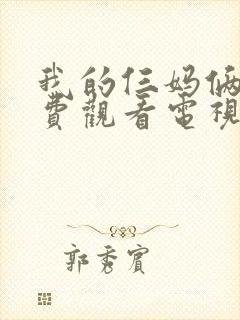 我的仨妈俩
費觀看電視
郭秀賓